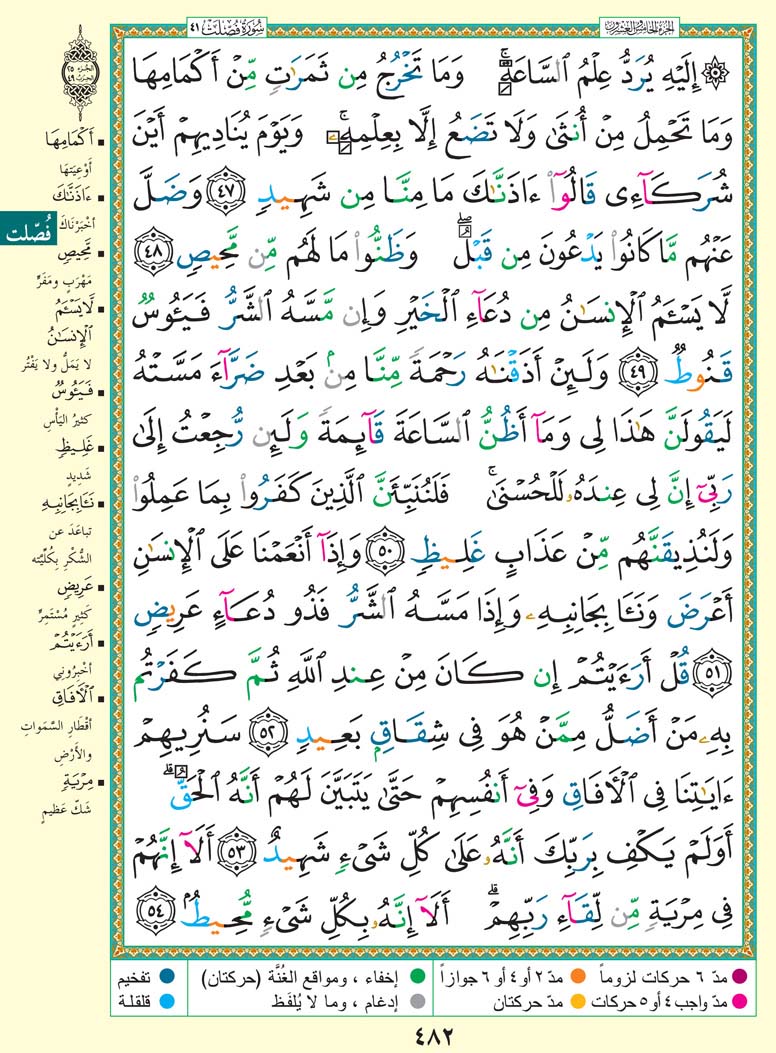 سُورَةُ فُصِّلَتْ ٤١
الجُزءُ الخَامِسُ والعِشْرُون
۞ إِلَيْهِ يُرَدُّ عِلْمُ ٱلسَّاعَةِ ۚ وَمَا تَخْرُجُ مِن ثَمَرَٰتٍ مِّنْ أَكْمَامِهَا
وَمَا تَحْمِلُ مِنْ أُنثَىٰ وَلَا تَضَعُ إِلَّا بِعِلْمِهِۦ ۚ وَيَوْمَ يُنَادِيهِمْ أَيْنَ
شُرَكَآءِى قَالُوٓا۟ ءَاذَنَّـٰكَ مَا مِنَّا مِن شَهِيدٍ ٤٧ وَضَلَّ
عَنْهُم مَّا كَانُوا۟ يَدْعُونَ مِن قَبْلُ ۖ وَظَنُّوا۟ مَا لَهُم مِّن مَّحِيصٍ ٤٨
لَّا يَسْـَٔمُ ٱلْإِنسَـٰنُ مِن دُعَآءِ ٱلْخَيْرِ وَإِن مَّسَّهُ ٱلشَّرُّ فَيَـُٔوسٌ
قَنُوطٌ ٤٩ وَلَئِنْ أَذَقْنَـٰهُ رَحْمَةً مِّنَّا مِنۢ بَعْدِ ضَرَّآءَ مَسَّتْهُ
لَيَقُولَنَّ هَـٰذَا لِى وَمَآ أَظُنُّ ٱلسَّاعَةَ قَآئِمَةً وَلَئِن رُّجِعْتُ إِلَىٰ
رَبِّىٓ إِنَّ لِى عِندَهُۥ لَلْحُسْنَىٰ ۚ فَلَنُنَبِّئَنَّ ٱلَّذِينَ كَفَرُوا۟ بِمَا عَمِلُوا۟
وَلَنُذِيقَنَّهُم مِّنْ عَذَابٍ غَلِيظٍ ٥٠ وَإِذَآ أَنْعَمْنَا عَلَى ٱلْإِنسَـٰنِ
أَعْرَضَ وَنَـَٔا بِجَانِبِهِۦ وَإِذَا مَسَّهُ ٱلشَّرُّ فَذُو دُعَآءٍ عَرِيضٍ
٥١ قُلْ أَرَءَيْتُمْ إِن كَانَ مِنْ عِندِ ٱللَّهِ ثُمَّ كَفَرْتُم
بِهِۦ مَنْ أَضَلُّ مِمَّنْ هُوَ فِى شِقَاقٍۭ بَعِيدٍ ٥٢ سَنُرِيهِمْ
ءَايَـٰتِنَا فِى ٱلْـَٔافَاقِ وَفِىٓ أَنفُسِهِمْ حَتَّىٰ يَتَبَيَّنَ لَهُمْ أَنَّهُ ٱلْحَقُّ ۗ
أَوَلَمْ يَكْفِ بِرَبِّكَ أَنَّهُۥ عَلَىٰ كُلِّ شَىْءٍ شَهِيدٌ ٥٣ أَلَآ إِنَّهُمْ
فِى مِرْيَةٍ مِّن لِّقَآءِ رَبِّهِمْ ۗ أَلَآ إِنَّهُۥ بِكُلِّ شَىْءٍ مُّحِيطٌۢ ٥٤
الجزء
٢٥
الحزب
٤٩
أَكْمَامِهَا
أَوْعِيَتِهَا
ءَاذَنَّـٰكَ
أخْبَرْنَاكَ
فُصِّلَت
مَّحِيصٍ
مَهْرَبٍ ومَفَرٍّ
لَّا يَسْـَٔمُ
ٱلْإِنسَـٰنُ
لا يَمَلُّ ولا يَفْتُر
فَيَـُٔوسٌ
كثيرُ اليَأْسِ
غَلِيظٍ
شَدِيدٍ
نَـَٔا بِجَانِبِهِ
تباعَدَ عن
الشُّكْرِ بِكُلِّيّتِه
عَرِيضٍ
كَثِيرٍ مُسْتَمِرٍّ
أَرَءَيْتُمْ
أخْبِرُونِي
ٱلْـَٔافَاقِ
أقْطَارِ السَّمَواتِ
والأَرْضِ
مِرْيَةٍ
شَكٍّ عَظِيمٍ
مدّ ٦ حركات لزوماً
مدّ ٢ أو ٤ أو ٦ جوازاً
إخفاء ، ومواقع الغُنَّة (حركتان)
تفخيم
مدّ واجب ٤ أو ٥ حركات
مدّ حركتان
إدغام ، وما لا يُلفَظ
قلقلة
٤٨٢